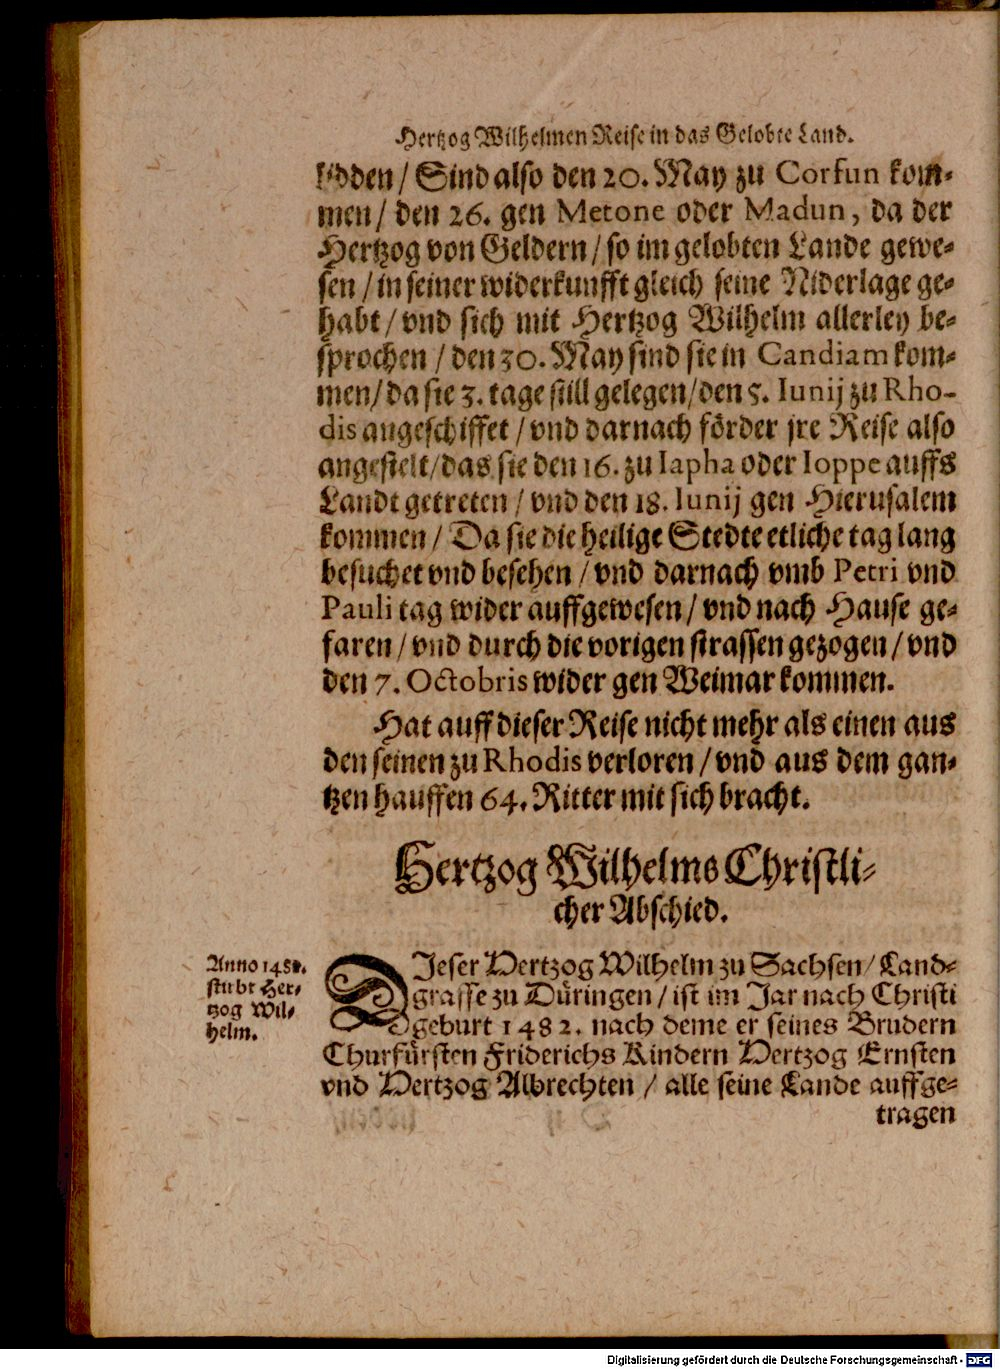 Hertzog Wilhelmen Reise in das Gelobte Land.
/ Sind also den 20. May zu Corfun kom-
men / den 26. gen Metone oder Madun, da der
Hertzog von Geldern / so im gelobten Lande gewe-
sen / in seiner widerkunfft gleich seine Niderlage ge-
habt / vnd sich mit Hertzog Wilhelm allerley be-
sprochen / den 30. May sind sie in Candiam kom-
men / da sie 3. tage still gelegen / den 5. Iunij zu Rho-
dis angeschiffet / vnd darnach förder jre Reise also
angestelt / das sie den 16. zu Iapha oder Ioppe auffs
Landt getreten / vnd den 18. Iunij gen Hierusalem
kommen / Da sie die heilige Stedte etliche tag lang
besuchet vnd besehen / vnd darnach vmb Petri vnd
Pauli tag wider auffgewesen / vnd nach Hause ge-
faren / vnd durch die vorigen strassen gezogen / vnd
den 7. Octobris wider gen Weimar kommen.
Hat auff dieser Reise nicht mehr als einen aus
den seinen zu Rhodis verloren / vnd aus dem gan-
tzen hauffen 64. Ritter mit sich bracht.
Hertzog Wilhelms Christli-
cher Abschied.
Anno
stirbt Her-
tzog Wil-
helm.
DJeser Hertzog Wilhelm zu Sachsen / Land-
graffe zu Düringen / ist im Jar nach Christi
geburt 1482. nach deme er seines Brudern
Churfürsten Friderichs Kindern Hertzog Ernsten
vnd Hertzog Albrechten / alle seine Lande auffge-
tragen
Digitalisierung gefördert durch die Deutsche Forschungsgemeinschaft - DFG